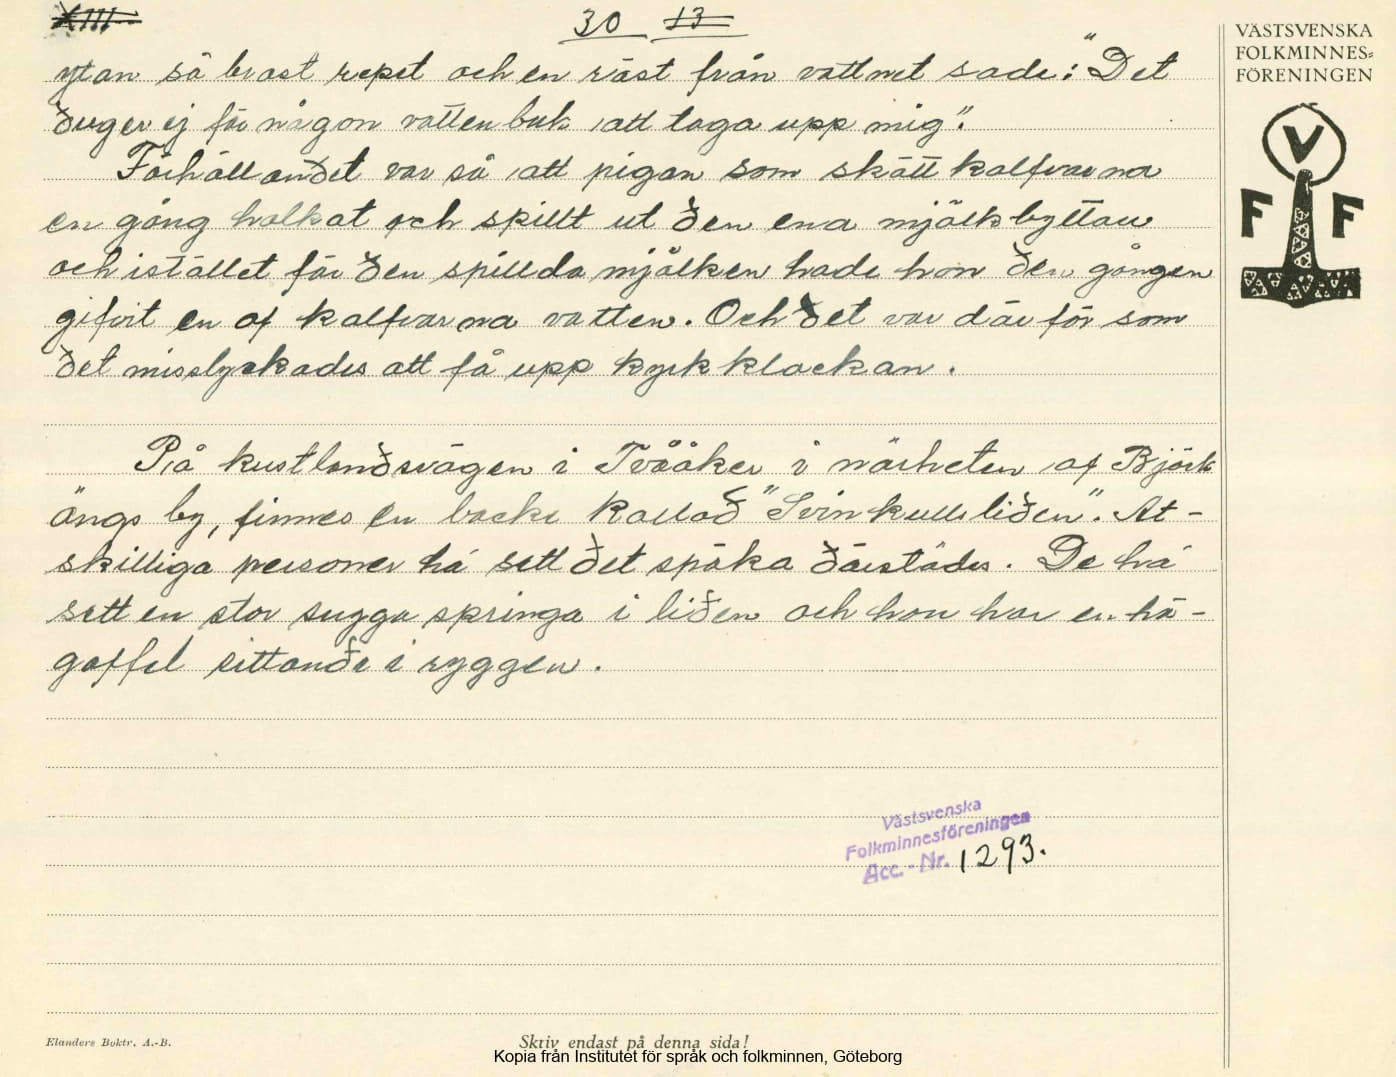 XIII
30 13
ytan så brast repet och en räst från vattnet sade: "Det
duger ej för någon vattenbuk att taga upp mig".
Förhållandet var så att pigan som skött kalfvarna
en gång halkat och spillt ut den ena mjölkbyttan
och istället för den spillda mjölken hade hon den gången
gifvit en af kalfvarna vatten. Och det var därför som
det misslyckades att få upp kyrkklockan.
På kustlandsvägen i Tvååker i närheten af Björk
ängs by, finnes en backe kallad "Svinkullsliden". At-
skilliga personer há sett det spöka därstädes. De há
sett en stor sugga springa i liden och hon har en hö-
gaffel sittande i ryggen.
VÄSTSVENSKA
FOLKMINNES=
FÖRENINGEN
V
F F
Västsvenska
Folkminnesföreningen
Acc.-Nr. 1293.
Elanders Boktr. A.-B.
Skriv endast på denna sida!
Kopia från Institutet för språk och folkminnen, Göteborg